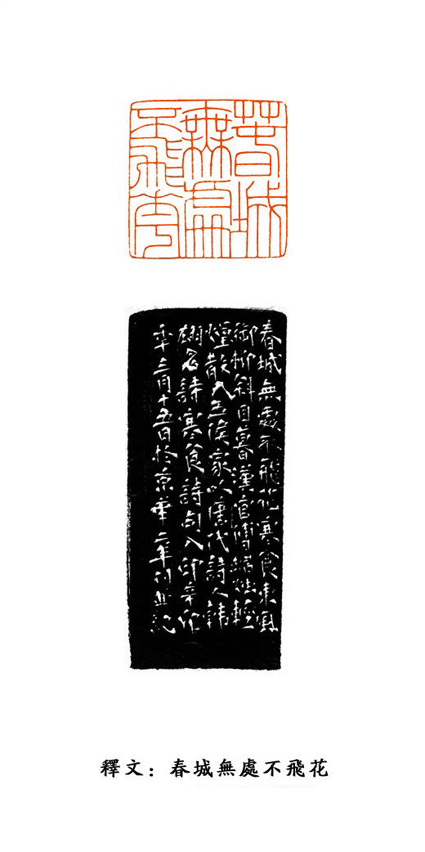 春城
無處
不飛花
春城無處不飛花寒食東風
御柳斜日暮漢宮傳蠟燭輕
煙散入五侯家以唐代詩人韓
翃名詩寒食詩句入印辛卯
年三月十五日於京華刊並記
釋文：春城無處不飛花